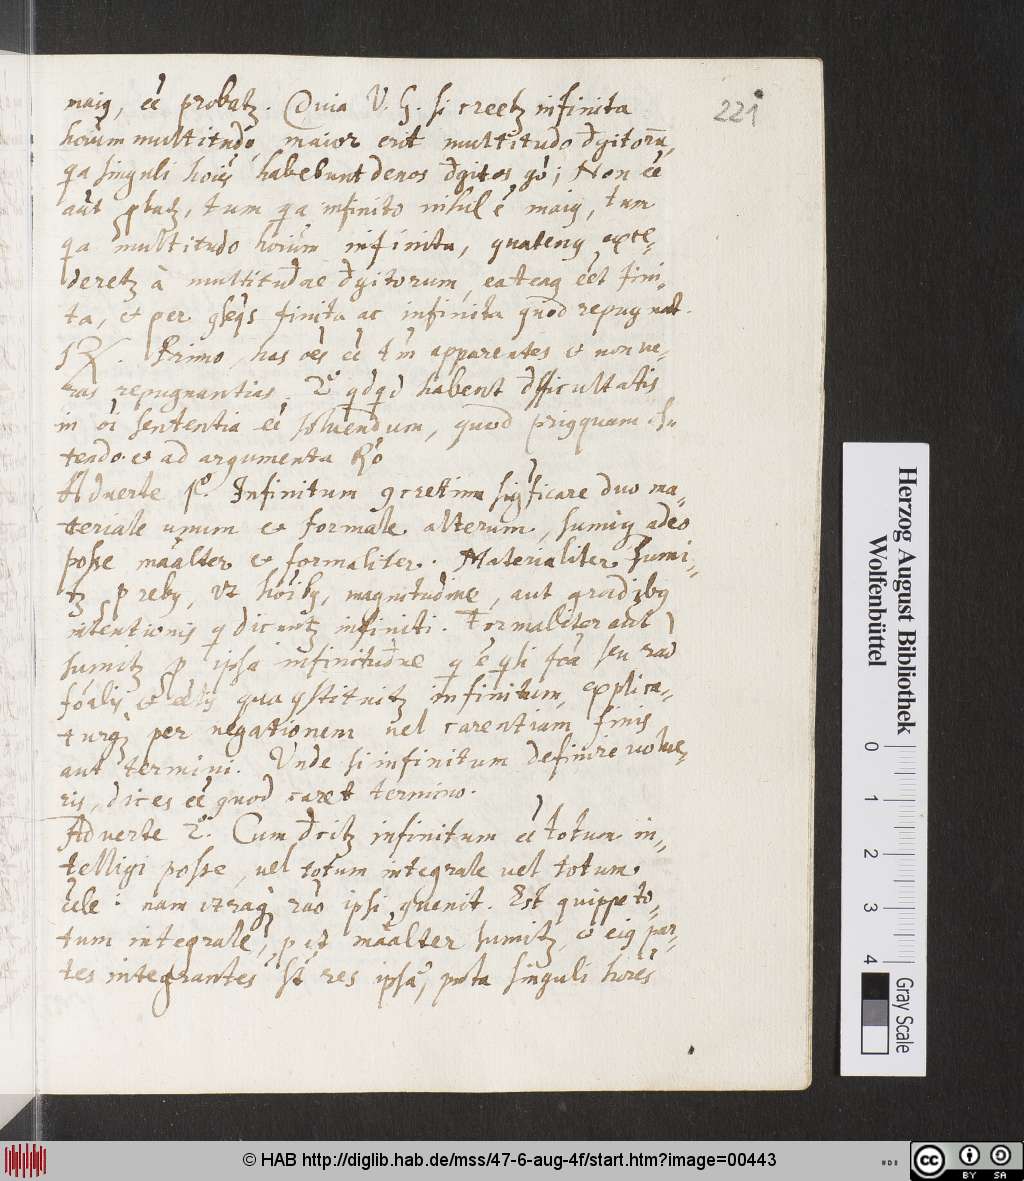 maig, eé probatz. Quia V. G. si creetz infinita
221
hoium multitudo, maior erit multitudo dgitorū,
qa singuli hoies habebunt denos dgitos gò; Non eé
aūt pbatz, tum qa infinito nihil é maig, tum
qa multitudo hoium infinita, quateng exce-
deretz à multitudne dgitorum, eateag eét fini-
ta, & per gseqs finita ac infinita quod repugnat.
Primo, has oés eé tm apparentes & non ve-
ras repugnantias. 2° qdqd habent dfficultatis
in oi sententia eé soluendum, quod prigquam
tendo & ad argumenta Rò
Aduerte 1°. Infinitum gcretim sigficare duo ma-
teriale unum & formale alterum, sumig adeò
posse maalter & formaliter. Materialiter sumi-
tz p reby, vt hoiby, magnitudine, aut gradiby
intentionis q dicuntz infiniti. Formaliter aut
sumitz p ipsa infinitudne q é qsi foa seu rao
foalis & qua gstituitz infinitum, explica-
turq per negationem vel carentiam finis
aut termini. Unde si infinitum definire volue-
ris, dices eé quod caret termino.
Aduerte 2°. Cum dcitz infinitum eé totum in-
telligi posse, vel totum integrale vel totum
nam utraq rao ipsi guenit. Est quippe to-
tum integrale, p ut maalter sumitz, & eig par-
tes integrantes st res ipsa, puta singuli hoies
Herzog August Bibliothek
Wolfenbüttel
0 1 2 3 4
Gray Scale
© HAB http://diglib.hab.de/mss/47-6-aug-4f/start.htm?image=00443
cc BY SA